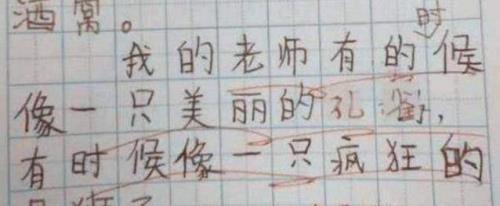 酒窝。
我的老师有的时候
像一只美丽的孔，
有时候像一只疯狂的